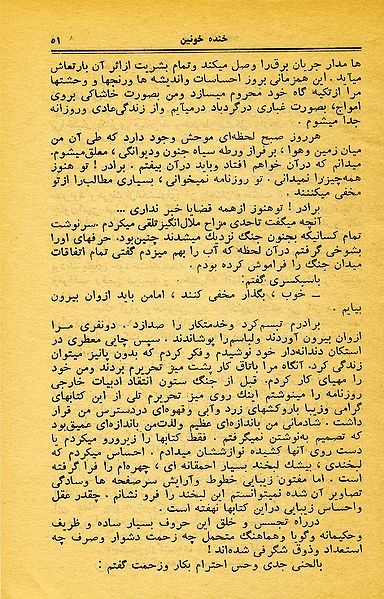 خنده خونین
۵۱
ها مدار جریان برق را وصل میکند وتمام بشریت ازاثر آن بارتعاش
میآید . این همزمانی بروز احساسات واندیشه ها ورنجها و وحشتها
مرا ازتکیه گاه خود محروم میسازد ومن بصورت خاشاکی بروی
امواج، بصورت غباری درگردباد درمیآیم واز زندگی‌عادی وروزانه
جدا میشوم .
هرروز صبح لحظه‌ای موحش وجود دارد که طی آن من
میان زمین وهوا ، برفراز ورطه سیاه جنون ودیوانگی ، معلق‌میشوم.
میدانم که درآن خواهم افتاد وباید درآن بیفتم . برادر ! تو هنوز
همه‌چیزرا نمیدانی . تو روزنامه نمیخوانی ، بسیاری مطالب‌را ازتو
مخفی میکنند .
برادر ! تو هنوز ازهمه قضایا خبر نداری ...
آنچه میگفت تاحدی مزاح ملال‌انگیزتلقی میکردم .سرنوشت
تمام کسانیکه بجنون جنگ نزدیك میشدند چنین‌بود. حرفهای اورا
بشوخی گرفتم درآن لحظه که آب را بهم میزدم گفتی تمام اتفاقات
میدان جنگ را فراموش کرده بودم .
باسبکسری گفتم:
ــ خوب ، بگذار مخفی کنند ، امامن باید ازوان بیرون
بیایم .
برادرم تبسم‌کرد وخدمتکار را صدازد . دونفری مـرا
ازوان بیرون آوردند ولباسم‌را پوشاندند . سپس چایی معطری در
استکان دندانه‌دار خود نوشیدم وفکر کردم که بدون پانیز میتوان
زندگی کرد. آنگاه مرا باتاق کار پشت میز تحریرم بردند ومن خود
را مهیای کار کردم. قبل از جنگ ستون انتقاد ادبیات خارجی
روزنامه را مینوشتم اینك روی میز تحریرم تلی از این کتابهای
گرامی وزیبا باروکشهای زرد وآبی وقهوه‌ای دردسترس من قرار
داشت . شادمانی من باندازه‌ای عظیم ولذت‌من باندازه‌ای عمیق‌بود
که تصمیم به‌نوشتن نمیگرفتم . فقط کتابها را زیرورو میکردم یا
دست روی آنها کشیده نوازششان میدادم . احساس میکردم که
لبخندی ، بیشك لبخند بسیار احمقانه ای ، چهره‌ام را فرا گرفته
است . اما مفتون زیبایی خطوط وآرایش سرصفحه ها وسادگی
تصاویر آن شده نمیتوانستم این لبخند را فرو نشانم . چقدر عقل
واحساس زیبایی دراین کتابها نهفته است .
درراه تجسس و خلق این حروف بسیار ساده و ظریف
وحکیمانه وگویا وهماهنگ متحمل چه زحمت دشوار وصرف چه
استعداد وذوق شگرفی شده‌اند !
بالحنی جدی وحس احترام بکار وزحمت گفتم :